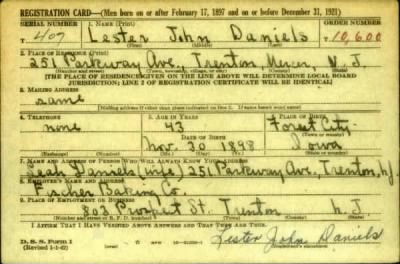 REGISTRATION CARD—(Men born on or after February 17, 1897 and on or before December 31, 1921)
SERIAL NUMBER 1. NAME (Print) ORDER NUMBER
T 407 Lester John Daniels 10,600
(First) (Middle) (Last)
2. PLACE OF RESIDENCE (Print)
251 Parkway Ave, Trenton, Mercer, N. J.
(Number and street) (Town, township, village, or city) (County) (State)
[THE PLACE OF RESIDENCE GIVEN ON THE LINE ABOVE WILL DETERMINE LOCAL BOARD
JURISDICTION; LINE 2 OF REGISTRATION CERTIFICATE WILL BE IDENTICAL]
3. MAILING ADDRESS
same
[Mailing address if other than place indicated on line 2. If same insert word same]
4. TELEPHONE 5. AGE IN YEARS 6. PLACE OF BIRTH
none 43 Forest City
DATE OF BIRTH (Town or county)
Nov. 30 1898 Iowa
(Exchange) (Number) (Mo.) (Day) (Yr.) (State or country)
7. NAME AND ADDRESS OF PERSON WHO WILL ALWAYS KNOW YOUR ADDRESS
Leah Daniels (wife) 251 Parkway Ave., Trenton, N.J.
8. EMPLOYER'S NAME AND ADDRESS
Fischer Baking Co.
9. PLACE OF EMPLOYMENT OR BUSINESS
803 Prospect St. Trenton N. J.
(Number and street or R. F. D. number) (Town) (County) (State)
I AFFIRM THAT I HAVE VERIFIED ABOVE ANSWERS AND THAT THEY ARE TRUE.
D. S. S. Form 1
(Revised 1-1-42)
Lester John Daniels